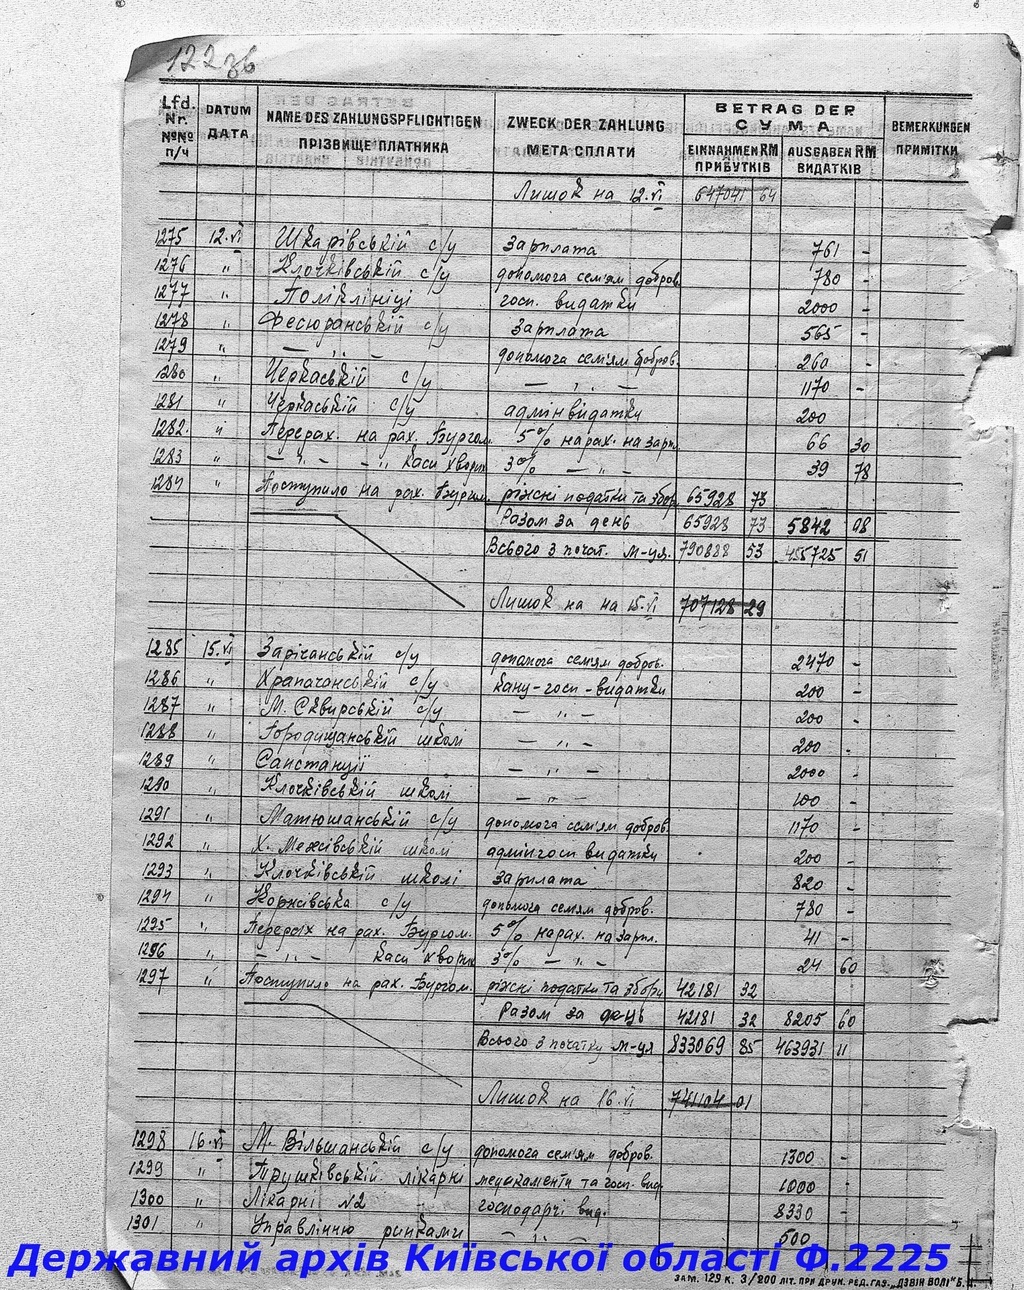 122зв
Lfd. Nr. №№ п/ч | DATUM ДАТА | NAME DES ZAHLUNGSPFLICHTIGEN ПРІЗВИЩЕ ПЛАТНИКА | ZWECK DER ZAHLUNG МЕТА СПЛАТИ | BETRAG DER СУМА | BEMERKUNGEN ПРИМІТКИ
EINNAHMEN RM ПРИБУТКІВ | AUSGABEN RM ВИДАТКІВ
Лишок на 12.VI 647041 64
1275 12.VI Шкарівській с/у зарплата 761 -
1276 " Клочківській с/у допомога семям добров. 780 -
1277 " Поліклініці госп. видатки 2000 -
1278 " Фесюранській с/у зарплата 565 -
1279 " — " — допомога семям добров. 260 -
1280 " Черкаській с/у — " — 1170 -
1281 " Черкаській с/у адмінвидатки 200
1282. " Перерах. на рах. Бургом. 5% нарах. на зарп. 66 30
1283 " — " — — " каси хворих 3% — " — 39 78
1284 " Поступило на рах. Бургом. ріжсні податки та збор. 65928 73
Разом за день 65928 73 5842 08
Всього з почат. м-ця. 790888 53 455725 51
Лишок на на 15.VI 707128 29
1285 15.VI Зарічанській с/у допомога семям добров. 2470 -
1286 " Храпачанській с/у канц-госп-видатки 200 -
1287 " М. Сквирській с/у — " — 200 -
1288 " Городищанській школі — " — 200 -
1289 " Санстанції — " — 2000 -
1290 " Клочківській школі — " — 100 -
1291 " Матюшанській с/у допомога семям добров. 1170 -
1292 " Х. Межівській школі адмінгосп видатки 200 -
1293 " Клочківській школі зарплата 820 -
1294 " с/у допомога семям добров. 780 -
1295 " Перерах на рах. Бургом. 5% нарах. на зарпл. 41 -
1296 " — " — каси хворих 3% — " — 24 60
1297 " Поступило на рах. Бургом. ріжсні податки та збори 42181 32
Разом за день 42181 32 8205 60
Всього з початку м-ця 833069 85 463931 11
Лишок на 16.VI 741104 01
1298 16.VI М. Вільшанській с/у допомога семям добров. 1300 -
1299 " Трушківській лікарні медикаменти та госп. вид. 1000 -
1300 " Лікарні №2 господарчі вид. 8330 -
1301 " Управлінню ринками — " — 500 -
Державний архів Київської області Ф.2225
ЗАМ. 129 К. 3/200 ЛІТ. ПРИ ДРУК. РЕД. ГАЗ. „ДЗВІН ВОЛІ" Б.Ц.